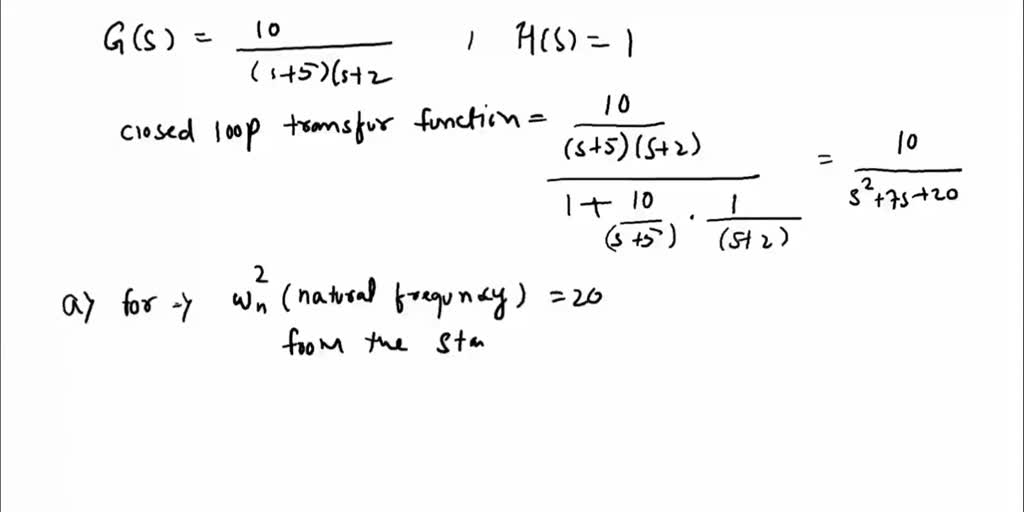 G(s) = 10 / (s+5)(s+2 , H(s) = 1
closed loop transfur function = 10 / (s+5)(s+2) / 1 + 10 / (s+5) · 1 / (s+2) = 10 / s²+7s+20
a) for → ωn² (natural frequncy) = 20
from the sta